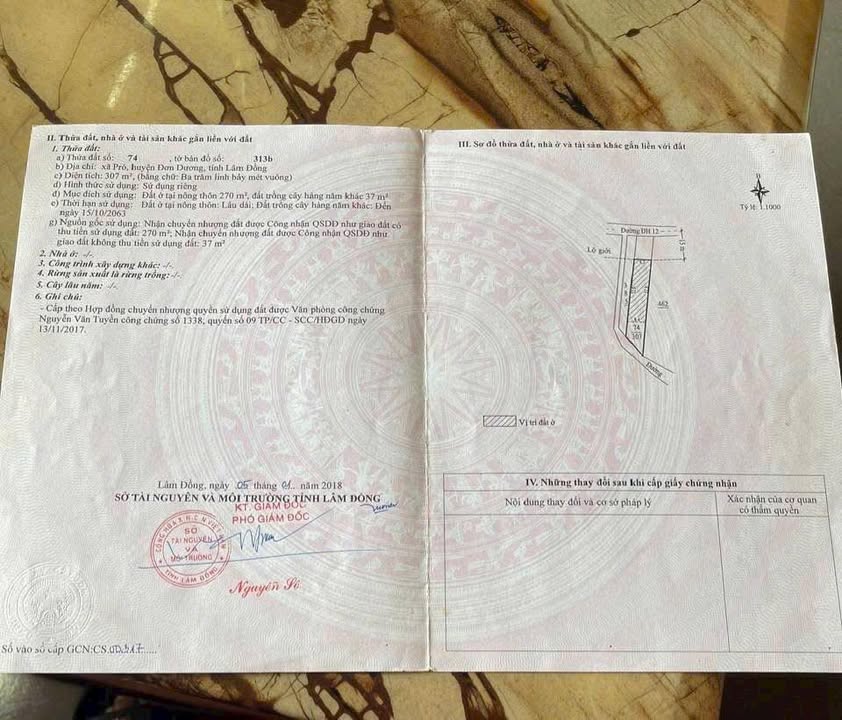 II. Thửa đất, nhà ở và tài sản khác gắn liền với đất
1. Thửa đất:
a) Thửa đất số: 74 , tờ bản đồ số: 313b
b) Địa chỉ: xã Pró, huyện Đơn Dương, tỉnh Lâm Đồng
c) Diện tích: 307 m², (bằng chữ: Ba trăm linh bảy mét vuông)
d) Hình thức sử dụng: Sử dụng riêng
đ) Mục đích sử dụng: Đất ở tại nông thôn 270 m², đất trồng cây hàng năm khác 37 m²
e) Thời hạn sử dụng: Đất ở tại nông thôn: Lâu dài; Đất trồng cây hàng năm khác: Đến
ngày 15/10/2063
g) Nguồn gốc sử dụng: Nhận chuyển nhượng đất được Công nhận QSDĐ như giao đất có
thu tiền sử dụng đất: 270 m²; Nhận chuyển nhượng đất được Công nhận QSDĐ như
giao đất không thu tiền sử dụng đất: 37 m²
2. Nhà ở: -/-
3. Công trình xây dựng khác: -/-
4. Rừng sản xuất là rừng trồng: -/-
5. Cây lâu năm: -/-
6. Ghi chú:
- Cấp theo Hợp đồng chuyển nhượng quyền sử dụng đất được Văn phòng công chứng
Nguyễn Văn Tuyền công chứng số 1338, quyển số 09 TP/CC - SCC/HĐGD ngày
13/11/2017.
Lâm Đồng, ngày 05 tháng 01 năm 2018
SỞ TÀI NGUYÊN VÀ MÔI TRƯỜNG TỈNH LÂM ĐỒNG
KT. GIÁM ĐỐC
PHÓ GIÁM ĐỐC
CỘNG HÒA X.H.C.N VIỆT NAM
SỞ
TÀI NGUYÊN
VÀ
MÔI TRƯỜNG
TỈNH LÂM ĐỒNG
Số vào sổ cấp GCN:CS
III. Sơ đồ thửa đất, nhà ở và tài sản khác gắn liền với đất
Tỷ lệ: 1:1000
Đường ĐH 12
Lộ giới
462
74
307
Đường
Vị trí đất ở
IV. Những thay đổi sau khi cấp giấy chứng nhận
Nội dung thay đổi và cơ sở pháp lý
Xác nhận của cơ quan
có thẩm quyền